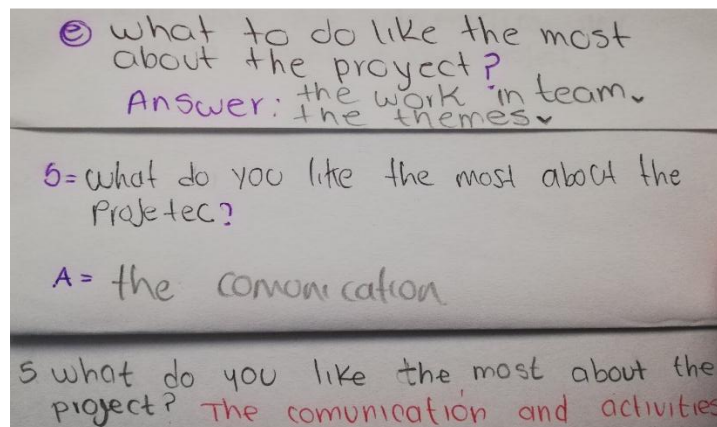 e what to do like the most
about the proyect?
Answer: the work in team.
the themes.
5= what do you like the most about the
Projetec?
A = the comonication
5 what do you like the most about the
project? The comunication and activities